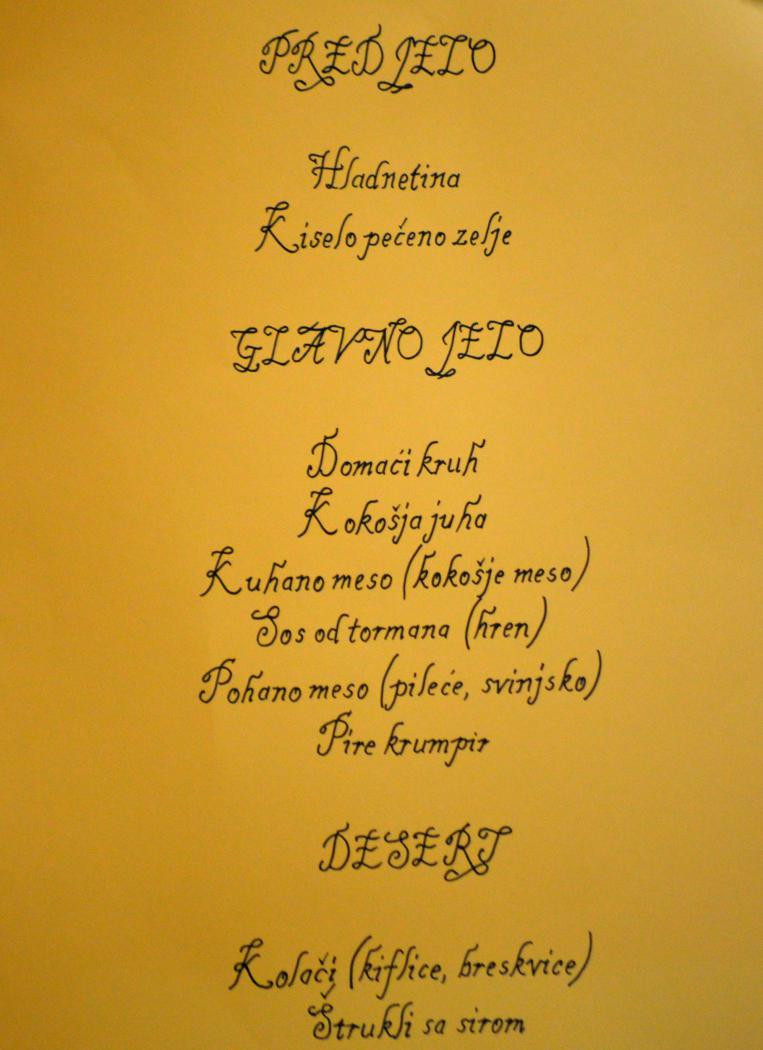 PREDJELO
Hladnetina
Kiselo pečeno zelje
GLAVNO JELO
Domaći kruh
Kokošja juha
Kuhano meso (kokošje meso)
Sos od tormana (hren)
Pohano meso (pileće, svinjsko)
Pire krumpir
DESERT
Kolači (kiflice, breskvice)
Štrukli sa sirom